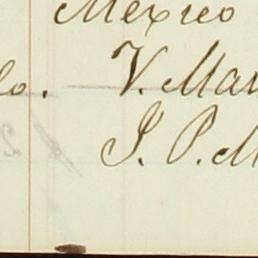 Mexico
lo. V. Mar
J. P. M